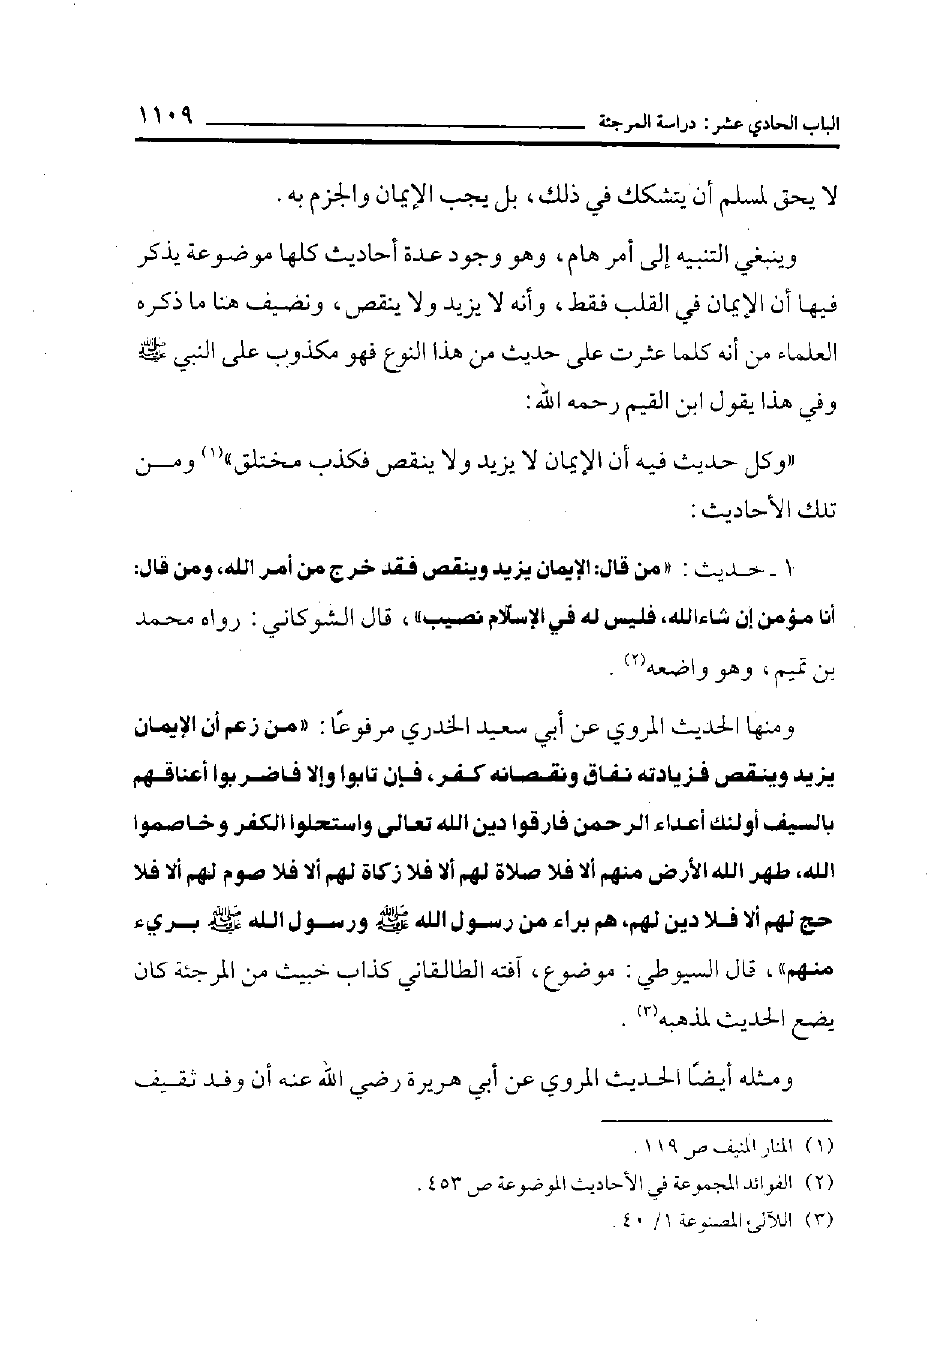 الباب الحادي عشر: دراسة المرجئة ١١٠٩
لا يحق لمسلم أن يتشكك في ذلك، بل يجب الإيمان والجزم به.
وينبغي التنبيه إلى أمر هام، وهو وجود عدة أحاديث كلها موضوعة يذكر
فيها أن الإيمان في القلب فقط، وأنه لا يزيد ولا ينقص، ونضيف هنا ما ذكره
العلماء من أنه كلما عثرت على حديث من هذا النوع فهو مكذوب على النبي ﷺ
وفي هذا يقول ابن القيم رحمه الله:
«وكل حديث فيه أن الإيمان لا يزيد ولا ينقص فكذب مختلق»(١) ومـن
تلك الأحاديث:
١ ـ حـديث: «من قال: الإيمان يزيد وينقص فقد خرج من أمر الله، ومن قال:
أنا مؤمن إن شاءالله، فليس له في الإسلام نصيب»، قال الشوكاني: رواه محمد
بن تميم، وهو واضعه(٢).
ومنها الحديث المروي عن أبي سعيد الخدري مرفوعًا: «من زعم أن الإيمان
يزيد وينقص فزيادته نفاق ونقصانه كفر، فإن تابوا وإلا فاضربوا أعناقهم
بالسيف أولئك أعداء الرحمن فارقوا دين الله تعالى واستحلوا الكفر وخاصموا
الله، طهر الله الأرض منهم ألا فلا صلاة لهم ألا فلا زكاة لهم ألا فلا صوم لهم ألا فلا
حج لهم ألا فلا دين لهم، هم براء من رسول الله ﷺ ورسول الله ﷺ بريء
منهم»، قال السيوطي: موضوع، آفته الطالقاني كذاب خبيث من المرجئة كان
يضع الحديث لمذهبه(٣).
ومثله أيضًا الحديث المروي عن أبي هريرة رضي الله عنه أن وفد ثقيف
(١) المنار المنيف ص ١١٩.
(٢) الفوائد المجموعة في الأحاديث الموضوعة ص ٤٥٣.
(٣) اللآلئ المصنوعة ١/ ٤٠.